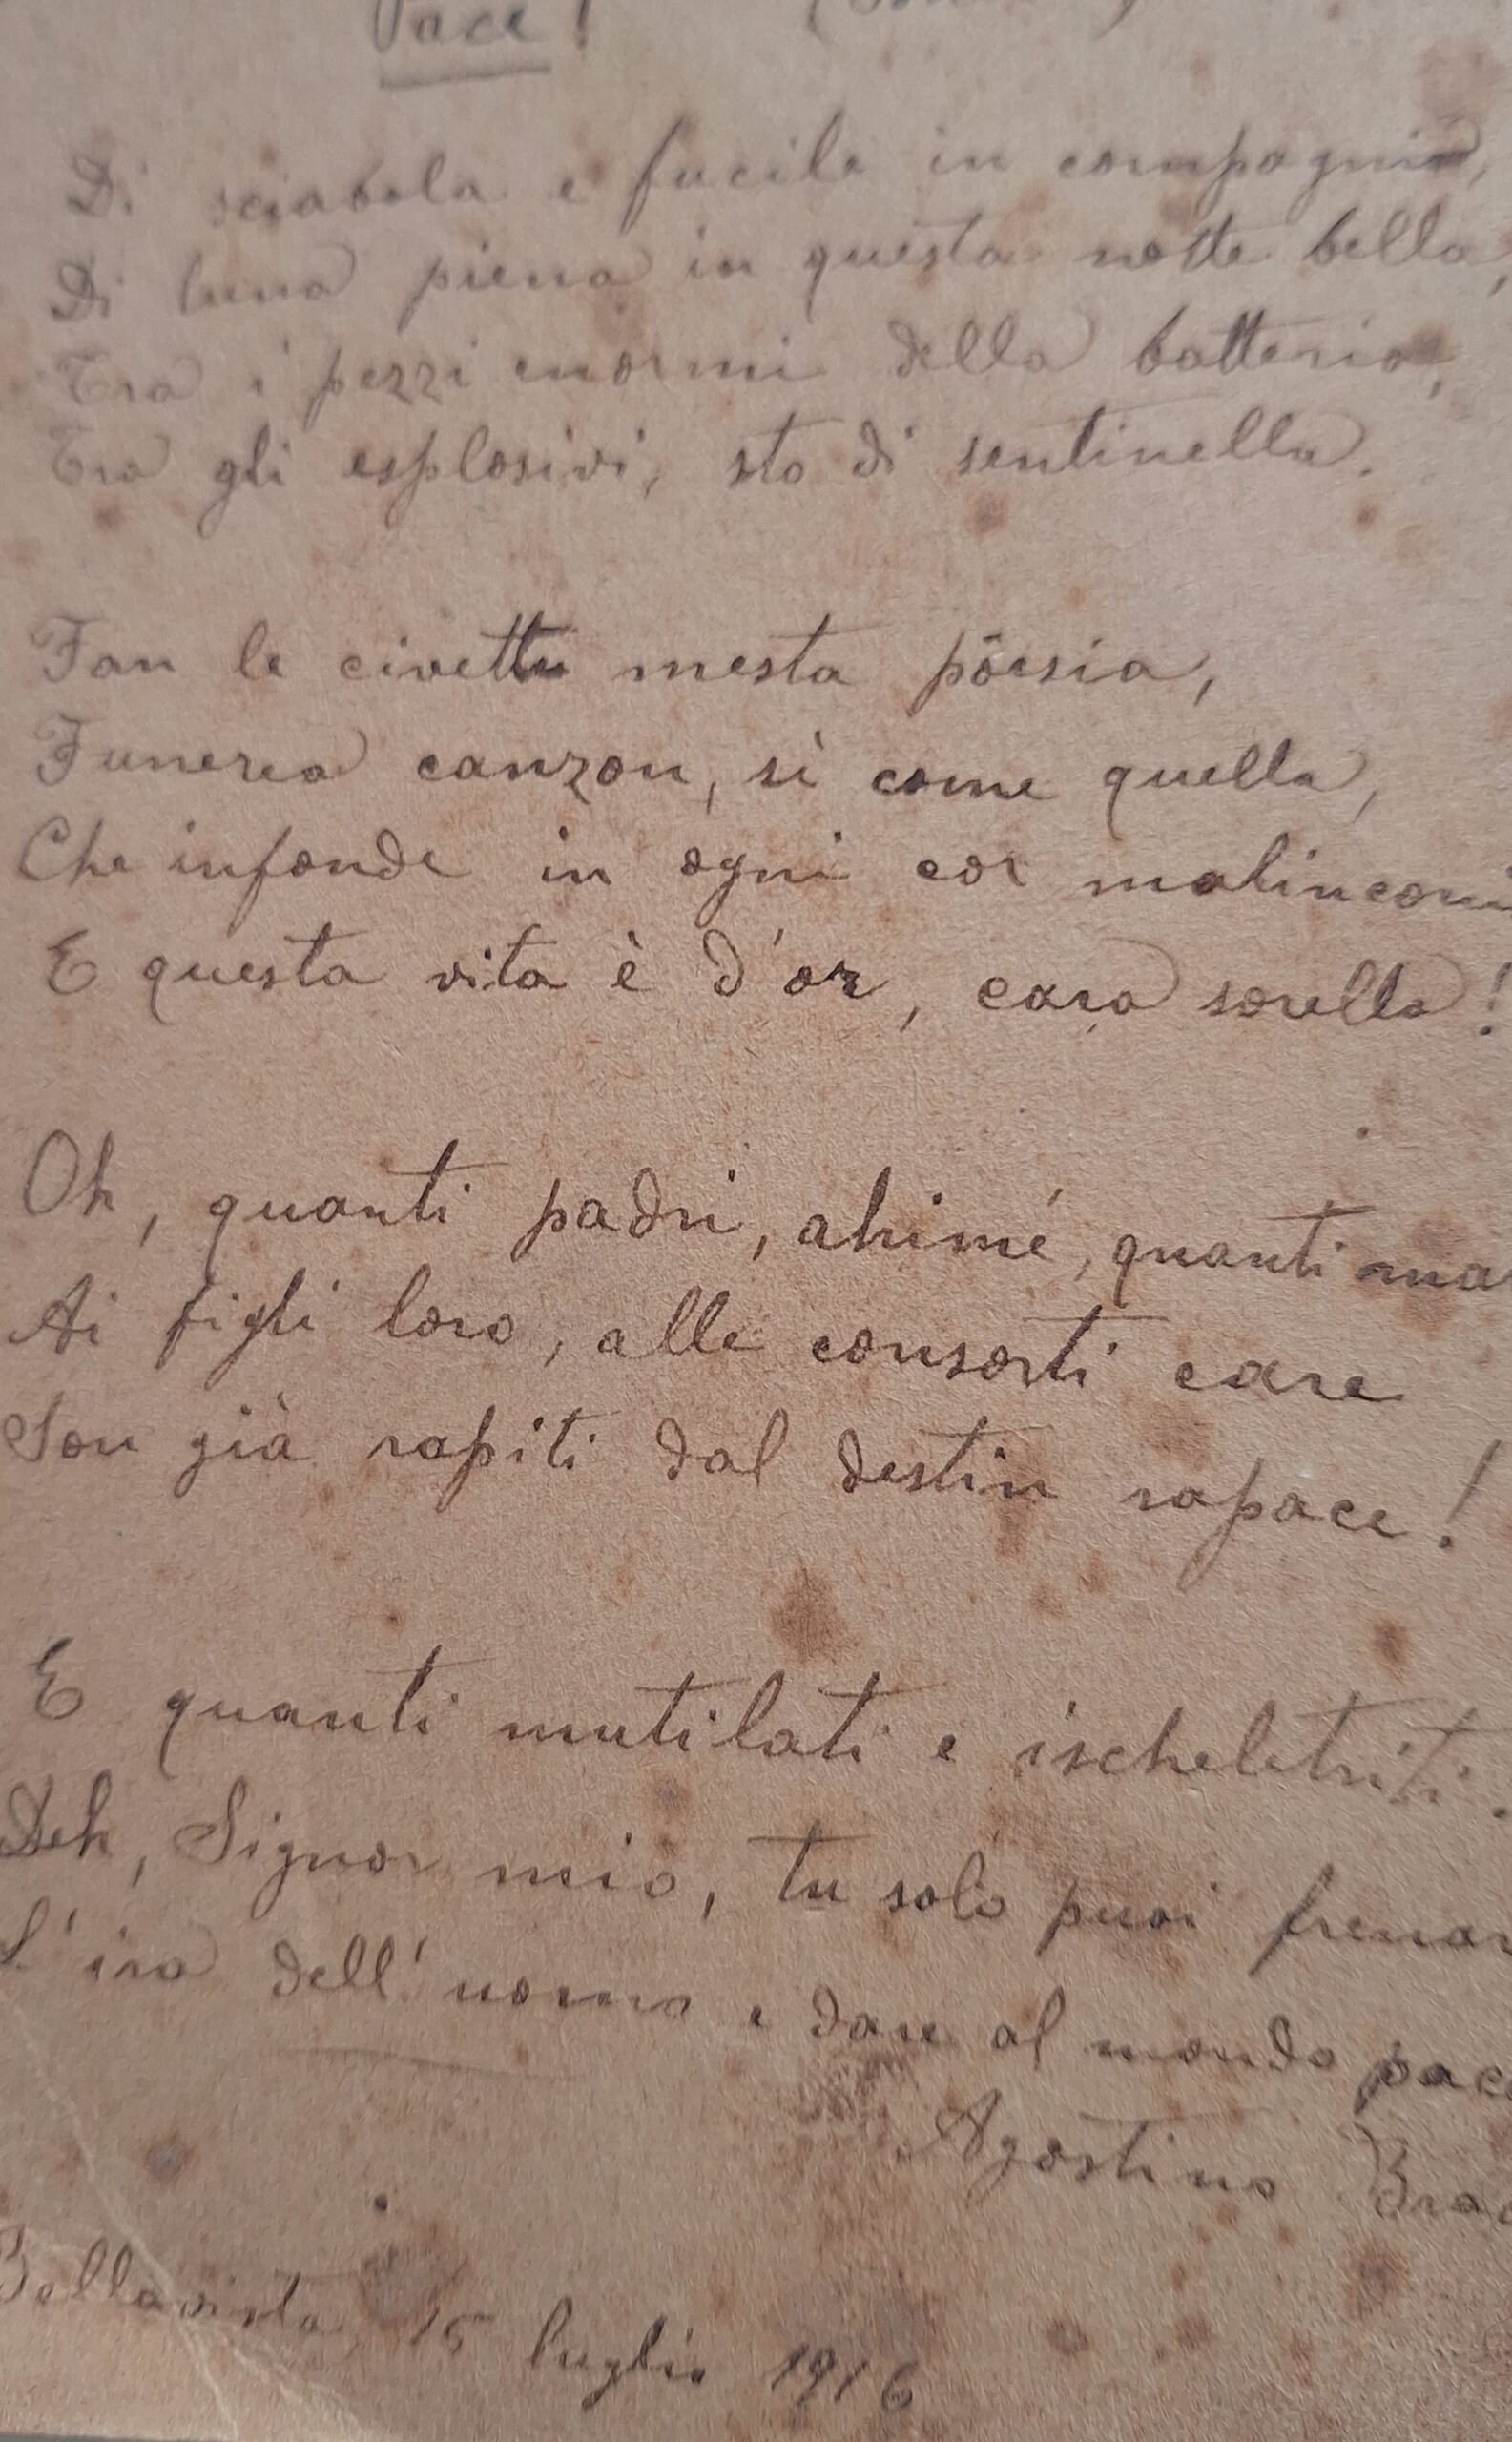 Pace!
Di sciabola e fucile in compagnia,
Di luna piena in questa notte bella,
Tra i pezzi enormi della batteria,
Tra gli esplosivi, sto di sentinella.
Fan le civette mesta pöesia,
Funerea canzon, sì come quella,
Che infonde in ogni cor malinconi
E questa vita è d'or, cara sorella!
Oh, quanti padri, ahimé, quanti ma
Ai figli loro, alle consorti care
Son già rapiti dal destin rapace!
E quanti mutilati e ischeletriti.
Deh, Signor mio, tu solo puoi frenar
L'ira dell'uomo e dare al mondo pace
Agostino
Bellavista, 15 luglio 1916